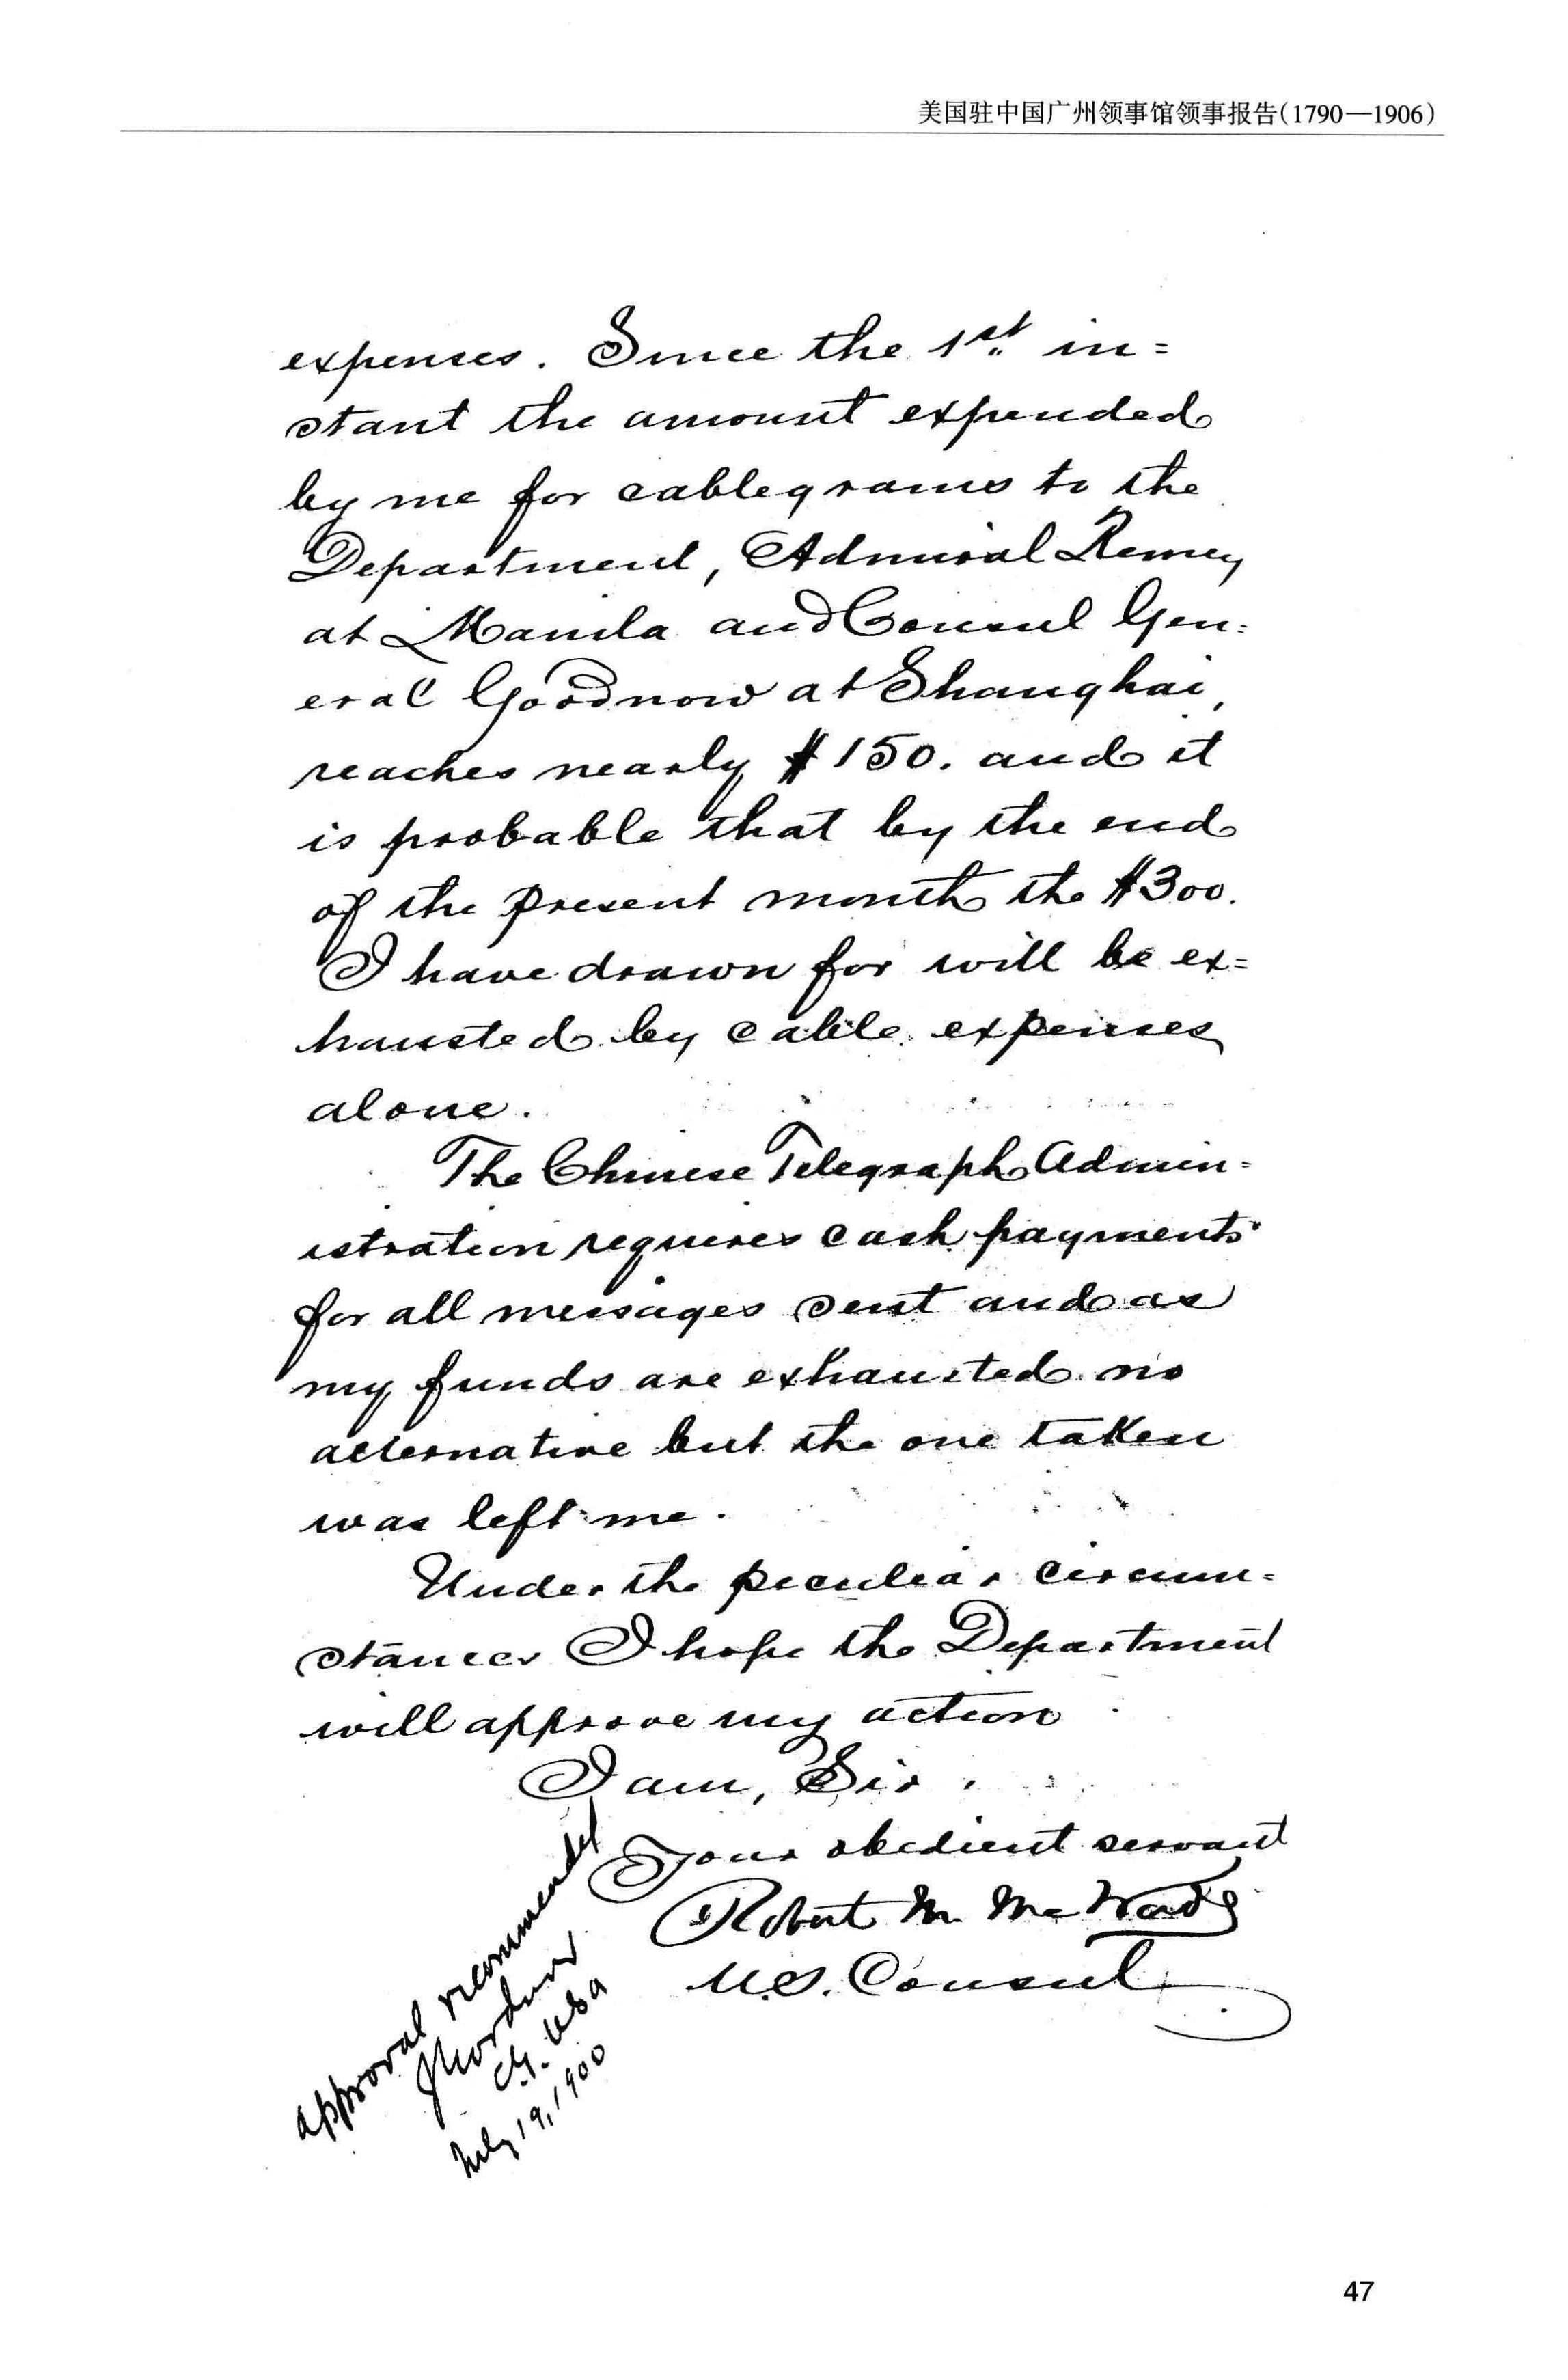 美国驻中国广州领事馆领事报告(1790—1906)
expenses. Since the 1st in=
stant the amount expended
by me for cablegrams to the
Department, Admiral Remey
at Manila and Consul Gen=
eral Goodnow at Shanghai,
reaches nearly $150. and it
is probable that by the end
of the present month the $300.
I have drawn for will be ex=
hausted by cable expenses
alone.
The Chinese Telegraph Admin=
istration requires cash payments
for all messages sent and as
my funds are exhausted no
alternative but the one taken
was left me.
Under the peculiar circum=
stances I hope the Department
will approve my action
I am, Sir,
Your obedient servant
Robert M. McWade
U.S. Consul
Approval recommended
July 19, 1900
47